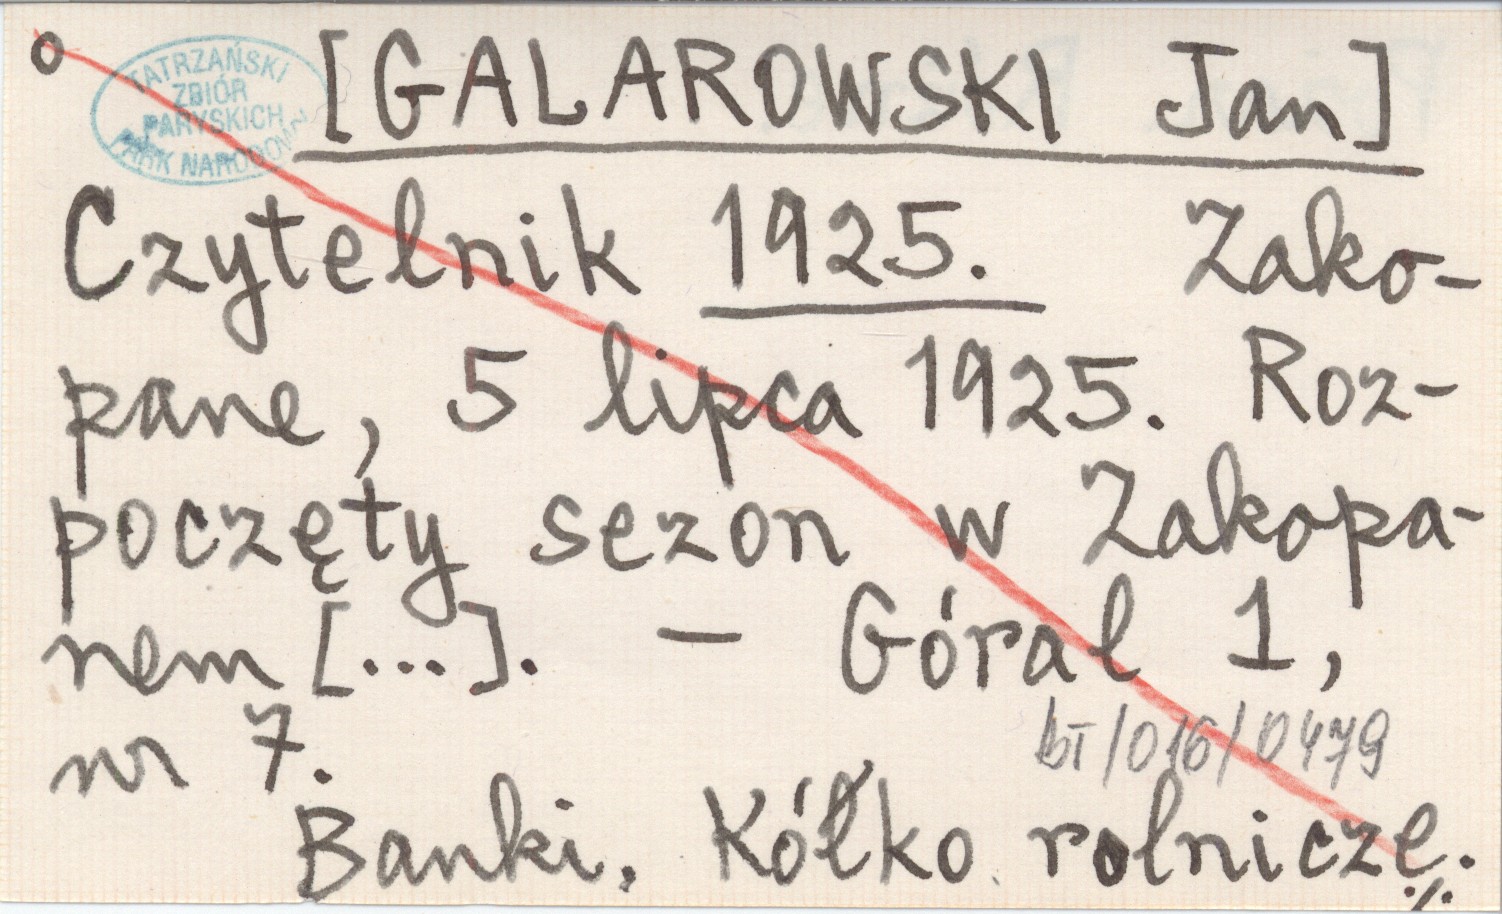 o
TATRZAŃSKI
ZBIÓR
PARYSKICH
PARK NARODOWY
[GALAROWSKI Jan]
Czytelnik 1925. Zako-
pane, 5 lipca 1925. Roz-
poczęty sezon w Zakopa-
nem [...]. — Góral 1,
nr 7.
bT/016/0479
Banki. Kółko rolnicze.
./.